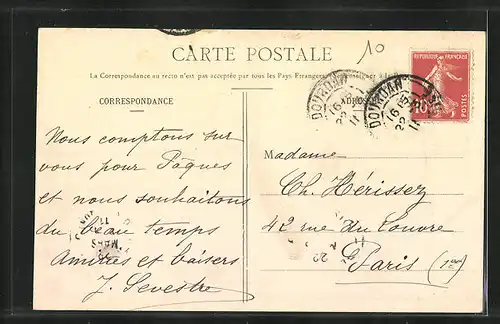 10
CARTE POSTALE
La Correspondance au recto n'est pas acceptée par tous les Pays Étrangers
CORRESPONDANCE
RÉPUBLIQUE FRANÇAISE
POSTES
DOURDAN
DOURDAN
Nous comptons sur
vous pour Pâques
et nous souhaitons
du beau temps
Amitiés et baisers
J. Sevestre
Madame
Ch. Hérissez
42 rue du Louvre
Paris (1er)